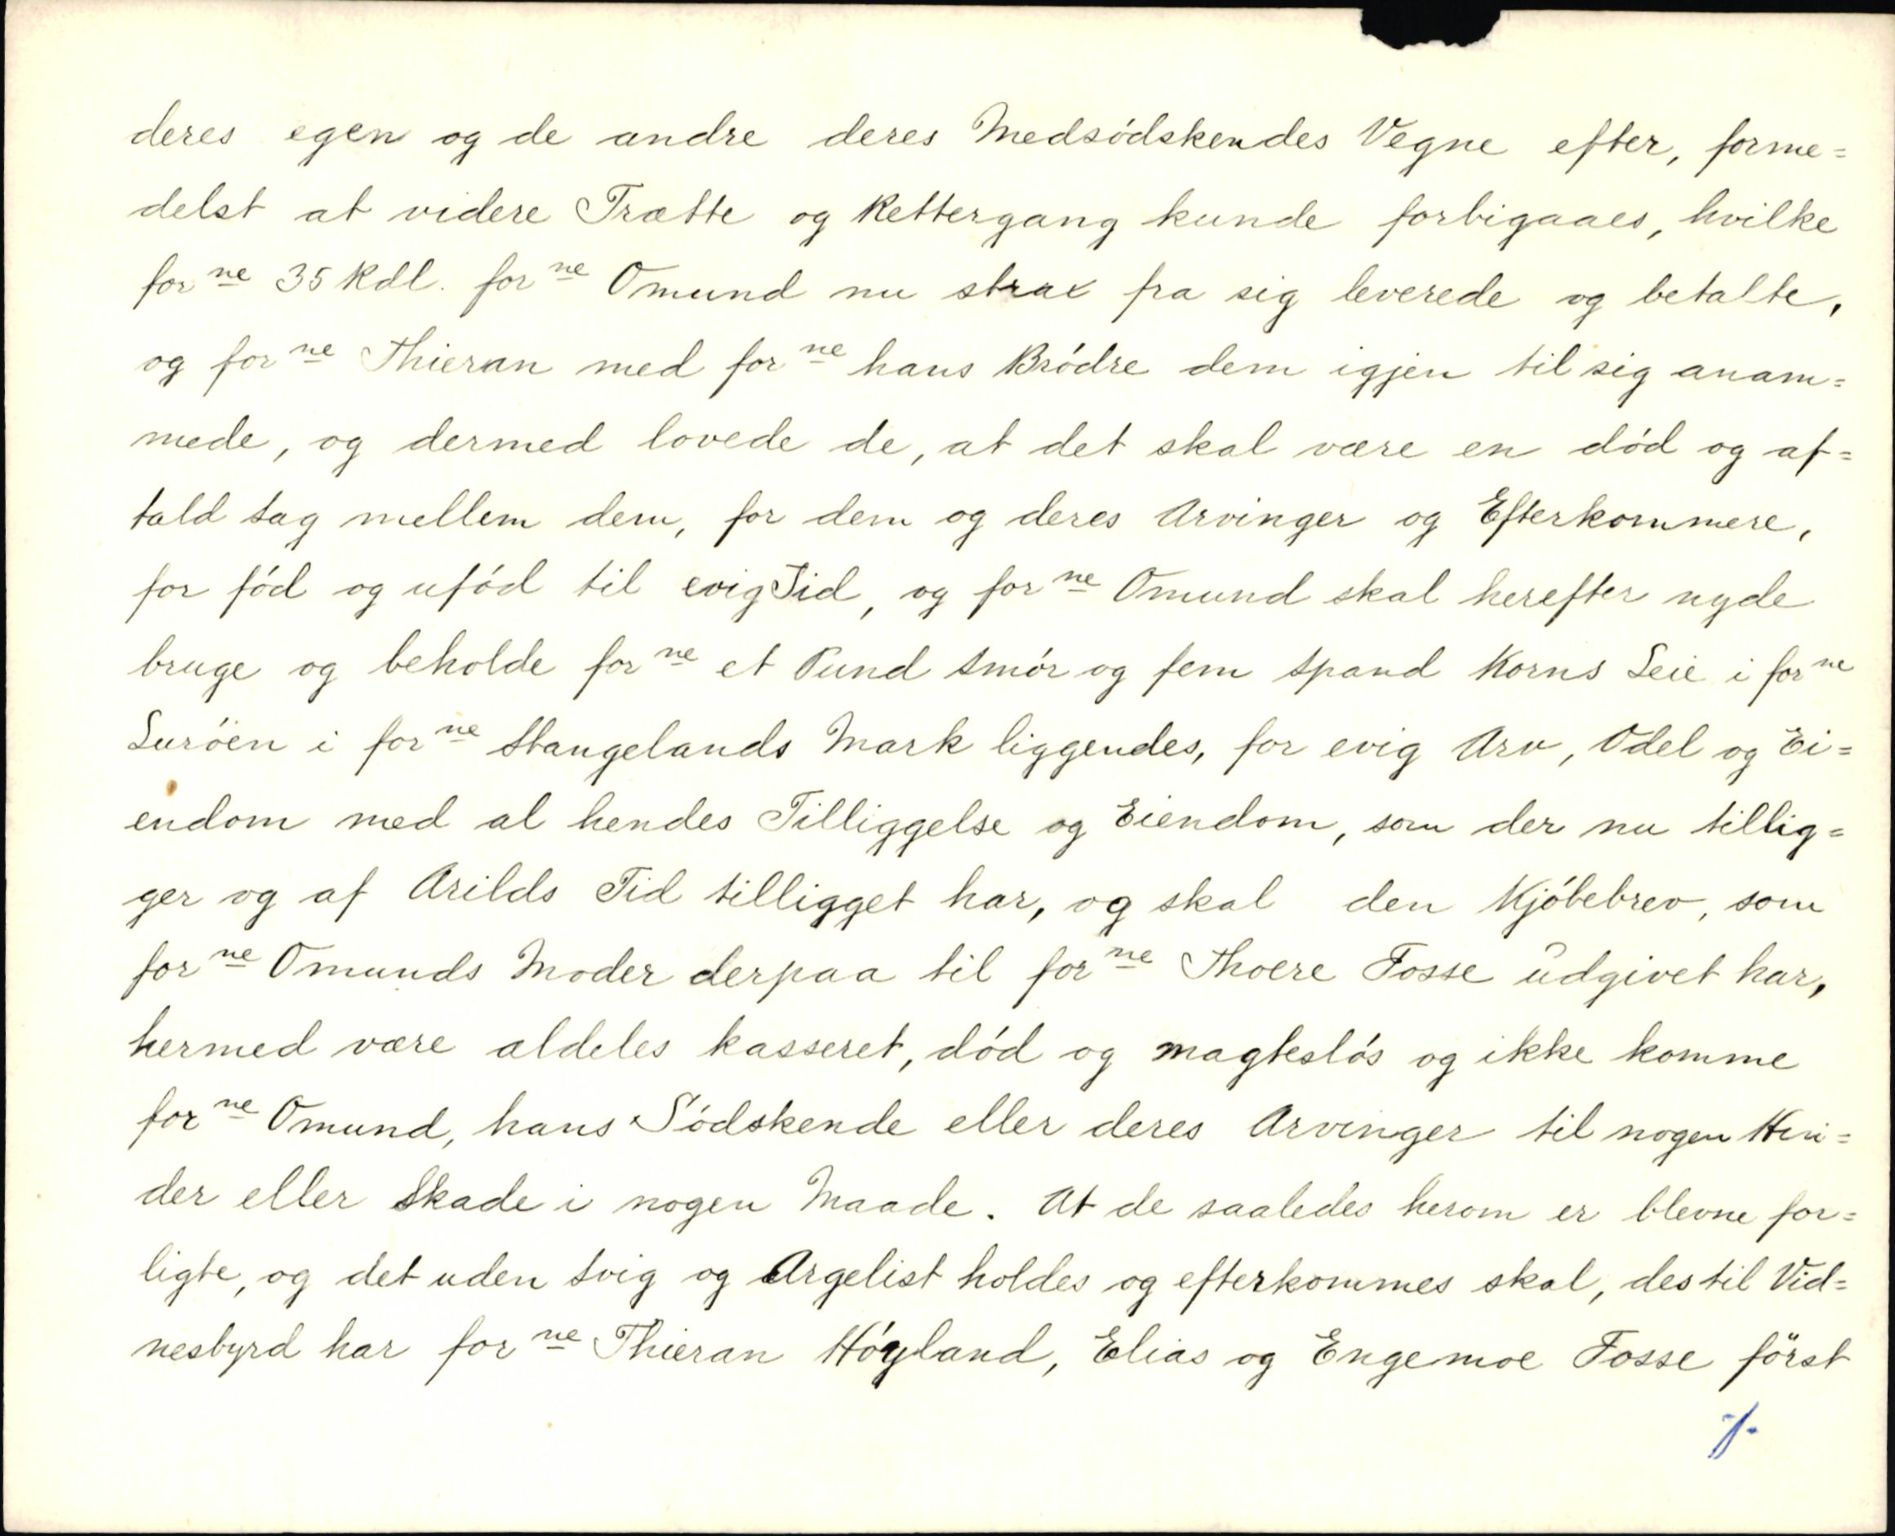 deres egen og de andre deres Medsødskendes Vegne efter, forme=
delst at videre Trætte og Rettergang kunde forbigaaes, hvilke
forne 35 Rdl. forne Omund nu strax fra sig leverede og betalte,
og forne Thieran med forne hans Brødre dem igjen til sig anam=
mede, og dermed lovede de, at det skal være en død og af=
tald Sag mellem dem, for dem og deres Arvinger og Efterkommere,
for fød og ufød til evig Tid, og forne Omund skal herefter nyde
bruge og beholde forne et Pund Smør og fem Spand Korns Leie i forne
Lurøen i forne Stangelands Mark liggendes, for evig Arv, Odel og Ei=
endom med al hendes Tilliggelse og Eiendom, som der nu tillig=
ger og af Arilds Tid tilligget har, og skal den Kjøbebrev, som
forne Omunds Moder derpaa til forne Thoere Fosse udgivet har,
hermed være aldeles kasseret, død og magtesløs og ikke komme
forne Omund, hans Sødskende eller deres Arvinger til nogen Hin=
der eller Skade i nogen Maade. At de saaledes herom er blevne for=
ligte, og det uden Svig og Argelist holdes og efterkommes skal, des til Vid=
nesbyrd har forne Thieran Høyland, Elias og Engemoe Fosse först
-/-